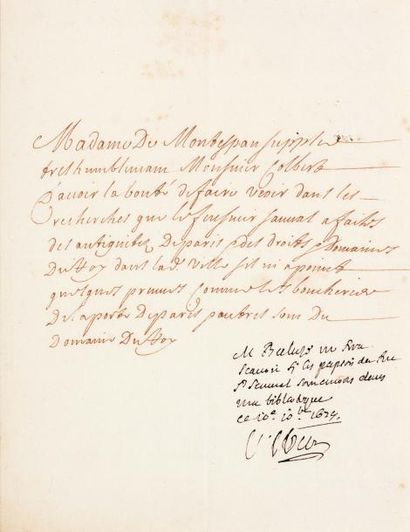 Madame De Montespan supplie
treshumblement Monsieur Colbert
d'avoir la bonté de faire veoir dans les
recherches que le feu sieur sauval a faites
des antiquitez de paris & des droits & domaines
Du Roy dans lad. ville s'il ni a point
quelques preuves comme les boucheries
De la porte de paris & autres sont Du
Domaine Du Roy
M Baluze me fera
scavoir si ces papiers du feu
Sr Sauval sont encores dans
ma bibliotheque
ce 10e 10bre 1679
Colbert